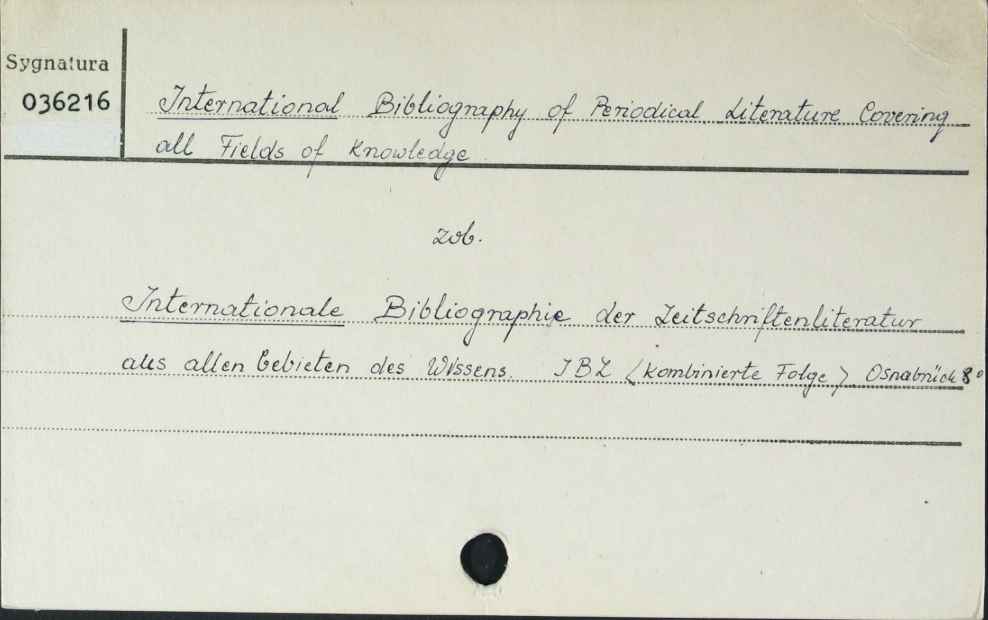 Sygnatura
036216
International Bibliography of Periodical Literature Covering
all Fields of Knowledge
zob.
Internationale Bibliographie der Zeitschriftenliteratur
aus allen Gebieten des Wissens. IBZ <kombinierte Folge> Osnabrück 8°